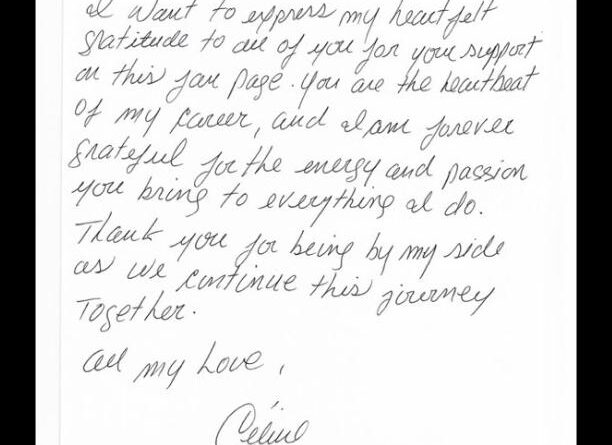 I want to express my heartfelt
gratitude to all of you for your support
on this fan page. You are the heartbeat
of my career, and I am forever
grateful for the energy and passion
you bring to everything I do.
Thank you for being by my side
as we continue this journey
Together.
All my Love,
Céline